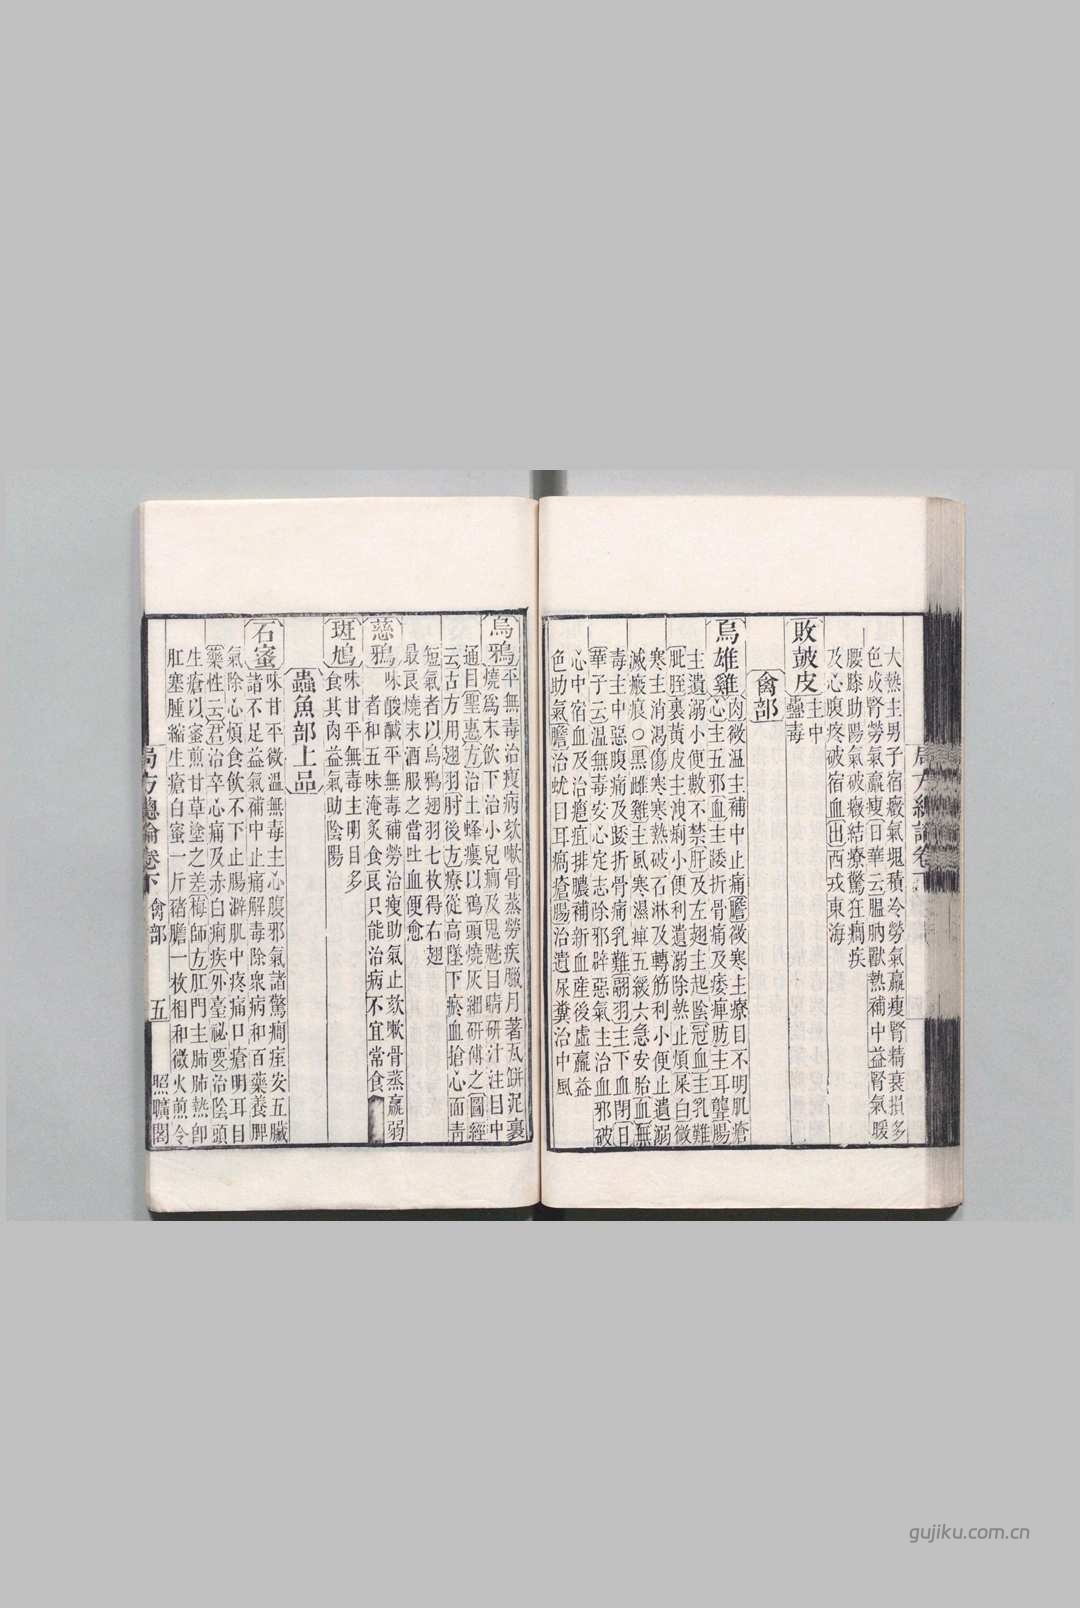 大熱主男子宿癥氣塊積冷勞氣羸瘦腎精衰損多
色成腎勞氣羸瘦日華云膃肭獸熱補中益腎氣暖
腰膝助陽氣破癥結療驚狂癎疾
及心腹疼破宿血出西戎東海
敗皷皮主中
蠱毒
禽部
烏雄雞肉微温主補中止痛膽微寒主療目不明肌瘡
心主五邪血主踒折骨痛及痿痺肪主耳聾腸
主遺溺小便數不禁肝及左翅主起陰冠血主乳難
肶胵裏黃皮主洩痢小便利遺溺除熱止煩屎白微
寒主消渴傷寒寒熱破石淋及轉筋利小便止遺溺
滅瘢痕○黑雌雞主風寒濕痺五緩六急安胎血無
毒主中惡腹痛及踒折骨痛乳難翮羽主下血閉日
華子云温無毒安心定志除邪辟惡氣主治血邪破
心中宿血及治癰疽排膿補新血産後虛羸益
色助氣膽治疣目耳瘑瘡腸治遺尿糞治中風
局方總論卷下
烏鴉平無毒治瘦病欬嗽骨蒸勞疾臘月者瓦餅泥裹
燒爲末飲下治小兒癎及鬼魅目睛研汁注目中
通目聖惠方治土蜂瘻以鴉頭燒灰細研傅之圖經
云古方用翅羽肘後方療從高墜下瘀血搶心面靑
短氣者以烏鴉翅羽七枚得右翅
最良燒末酒服之當吐血便愈
慈鴉味酸鹹平無毒補勞治瘦助氣止欬嗽骨蒸羸弱
者和五味淹炙食良只能治病不宜常食
斑鳩味甘平無毒主明目多
食其肉益氣助陰陽
蟲魚部上品
石蜜味甘平微温無毒主心腹邪氣諸驚癎痓安五臟
諸不足益氣補中止痛解毒除衆病和百藥養脾
氣除心煩食飲不下止腸澼肌中疼痛口瘡明耳目
藥性云君治卒心痛及赤白痢疾外臺祕要治陰頭
生瘡以蜜煎甘草塗之差梅師方肛門主肺肺熱卽
肛塞腫縮生瘡白蜜一斤猪膽一枚相和微火煎令
局方總論卷下 禽部 五 照曠閣
gujiku.com.cn